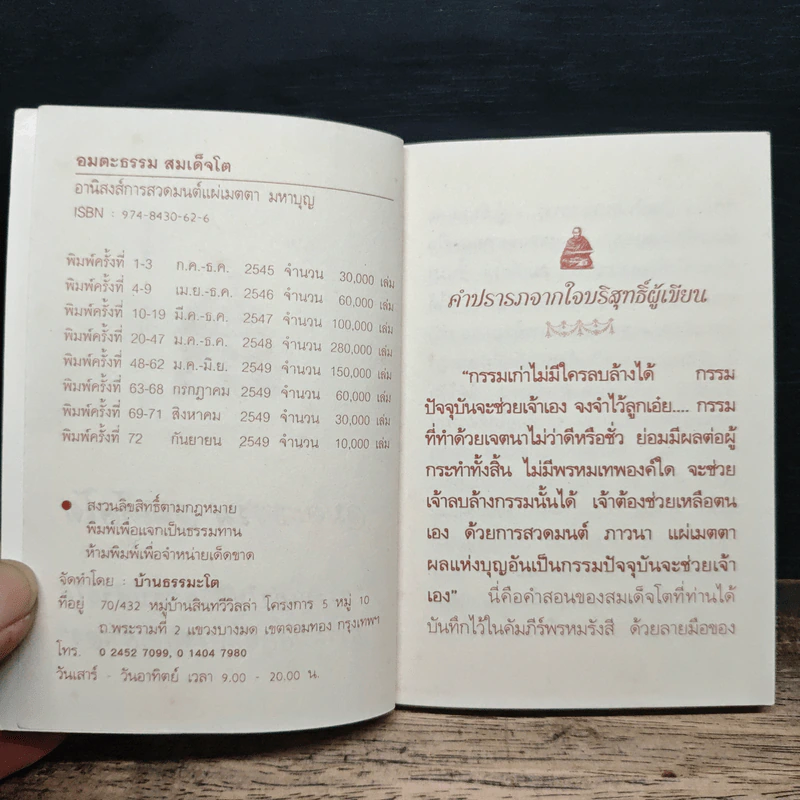 อมตะธรรม สมเด็จโต
อานิสงส์การสวดมนต์แผ่เมตตา มหาบุญ
ISBN : 974-8430-62-6
พิมพ์ครั้งที่ 1-3 ก.ค.-ธ.ค. 2545 จำนวน 30,000 เล่ม
พิมพ์ครั้งที่ 4-9 เม.ย.-ธ.ค. 2546 จำนวน 60,000 เล่ม
พิมพ์ครั้งที่ 10-19 มี.ค.-ธ.ค. 2547 จำนวน 100,000 เล่ม
พิมพ์ครั้งที่ 20-47 ม.ค.-ธ.ค. 2548 จำนวน 280,000 เล่ม
พิมพ์ครั้งที่ 48-62 ม.ค.-มิ.ย. 2549 จำนวน 150,000 เล่ม
พิมพ์ครั้งที่ 63-68 กรกฎาคม 2549 จำนวน 60,000 เล่ม
พิมพ์ครั้งที่ 69-71 สิงหาคม 2549 จำนวน 30,000 เล่ม
พิมพ์ครั้งที่ 72 กันยายน 2549 จำนวน 10,000 เล่ม
● สงวนลิขสิทธิ์ตามกฎหมาย
พิมพ์เพื่อแจกเป็นธรรมทาน
ห้ามพิมพ์เพื่อจำหน่ายเด็ดขาด
จัดทำโดย : บ้านธรรมะโต
ที่อยู่ 70/432 หมู่บ้านสินทวีวิลล่า โครงการ 5 หมู่ 10
ถ.พระรามที่ 2 แขวงบางมด เขตจอมทอง กรุงเทพฯ
โทร. 0 2452 7099, 0 1404 7980
วันเสาร์ - วันอาทิตย์ เวลา 9.00 - 20.00 น.
คำปรารภจากใจบริสุทธิ์ผู้เขียน
"กรรมเก่าไม่มีใครลบล้างได้ กรรม
ปัจจุบันจะช่วยเจ้าเอง จงจำไว้ลูกเอ๋ย.... กรรม
ที่ทำด้วยเจตนาไม่ว่าดีหรือชั่ว ย่อมมีผลต่อผู้
กระทำทั้งสิ้น ไม่มีพรหมเทพองค์ใด จะช่วย
เจ้าลบล้างกรรมนั้นได้ เจ้าต้องช่วยเหลือตน
เอง ด้วยการสวดมนต์ ภาวนา แผ่เมตตา
ผลแห่งบุญอันเป็นกรรมปัจจุบันจะช่วยเจ้า
เอง" นี่คือคำสอนของสมเด็จโตที่ท่านได้
บันทึกไว้ในคัมภีร์พรหมรังสี ด้วยลายมือของ